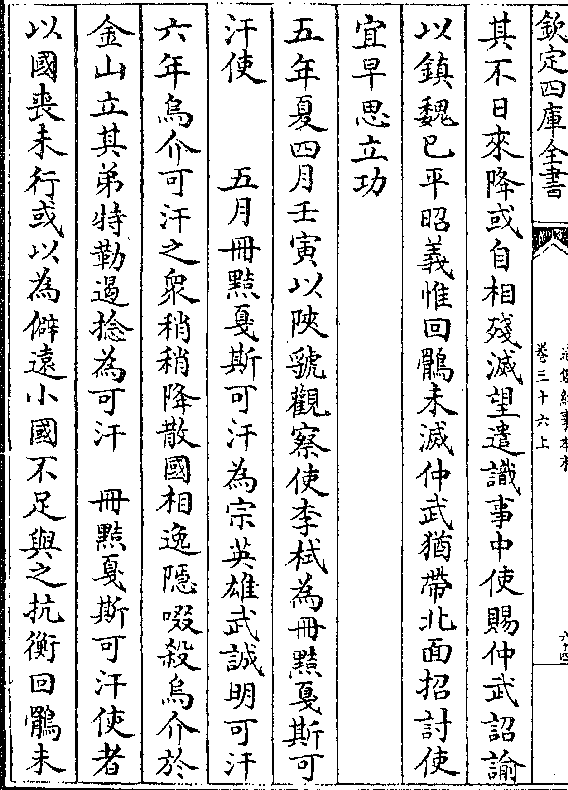 欽定四庫全書
卷三十六上
其不日來降或自相殘滅望遣識事中使賜仲武詔諭
以鎮魏已平昭義惟回鶻未滅仲武猶帶北面招討使
宜早思立功
五年夏四月壬寅以陜虢觀察使李栻為冊黠戛斯可
汗使　五月冊黠戛斯可汗為宗英雄武誠明可汗
六年烏介可汗之衆稍稍降散國相逸隱啜殺烏介於
金山立其弟特勒遏捻為可汗　冊黠戛斯可汗使者
以國喪未行或以為僻遠小國不足與之抗衡回鶻未